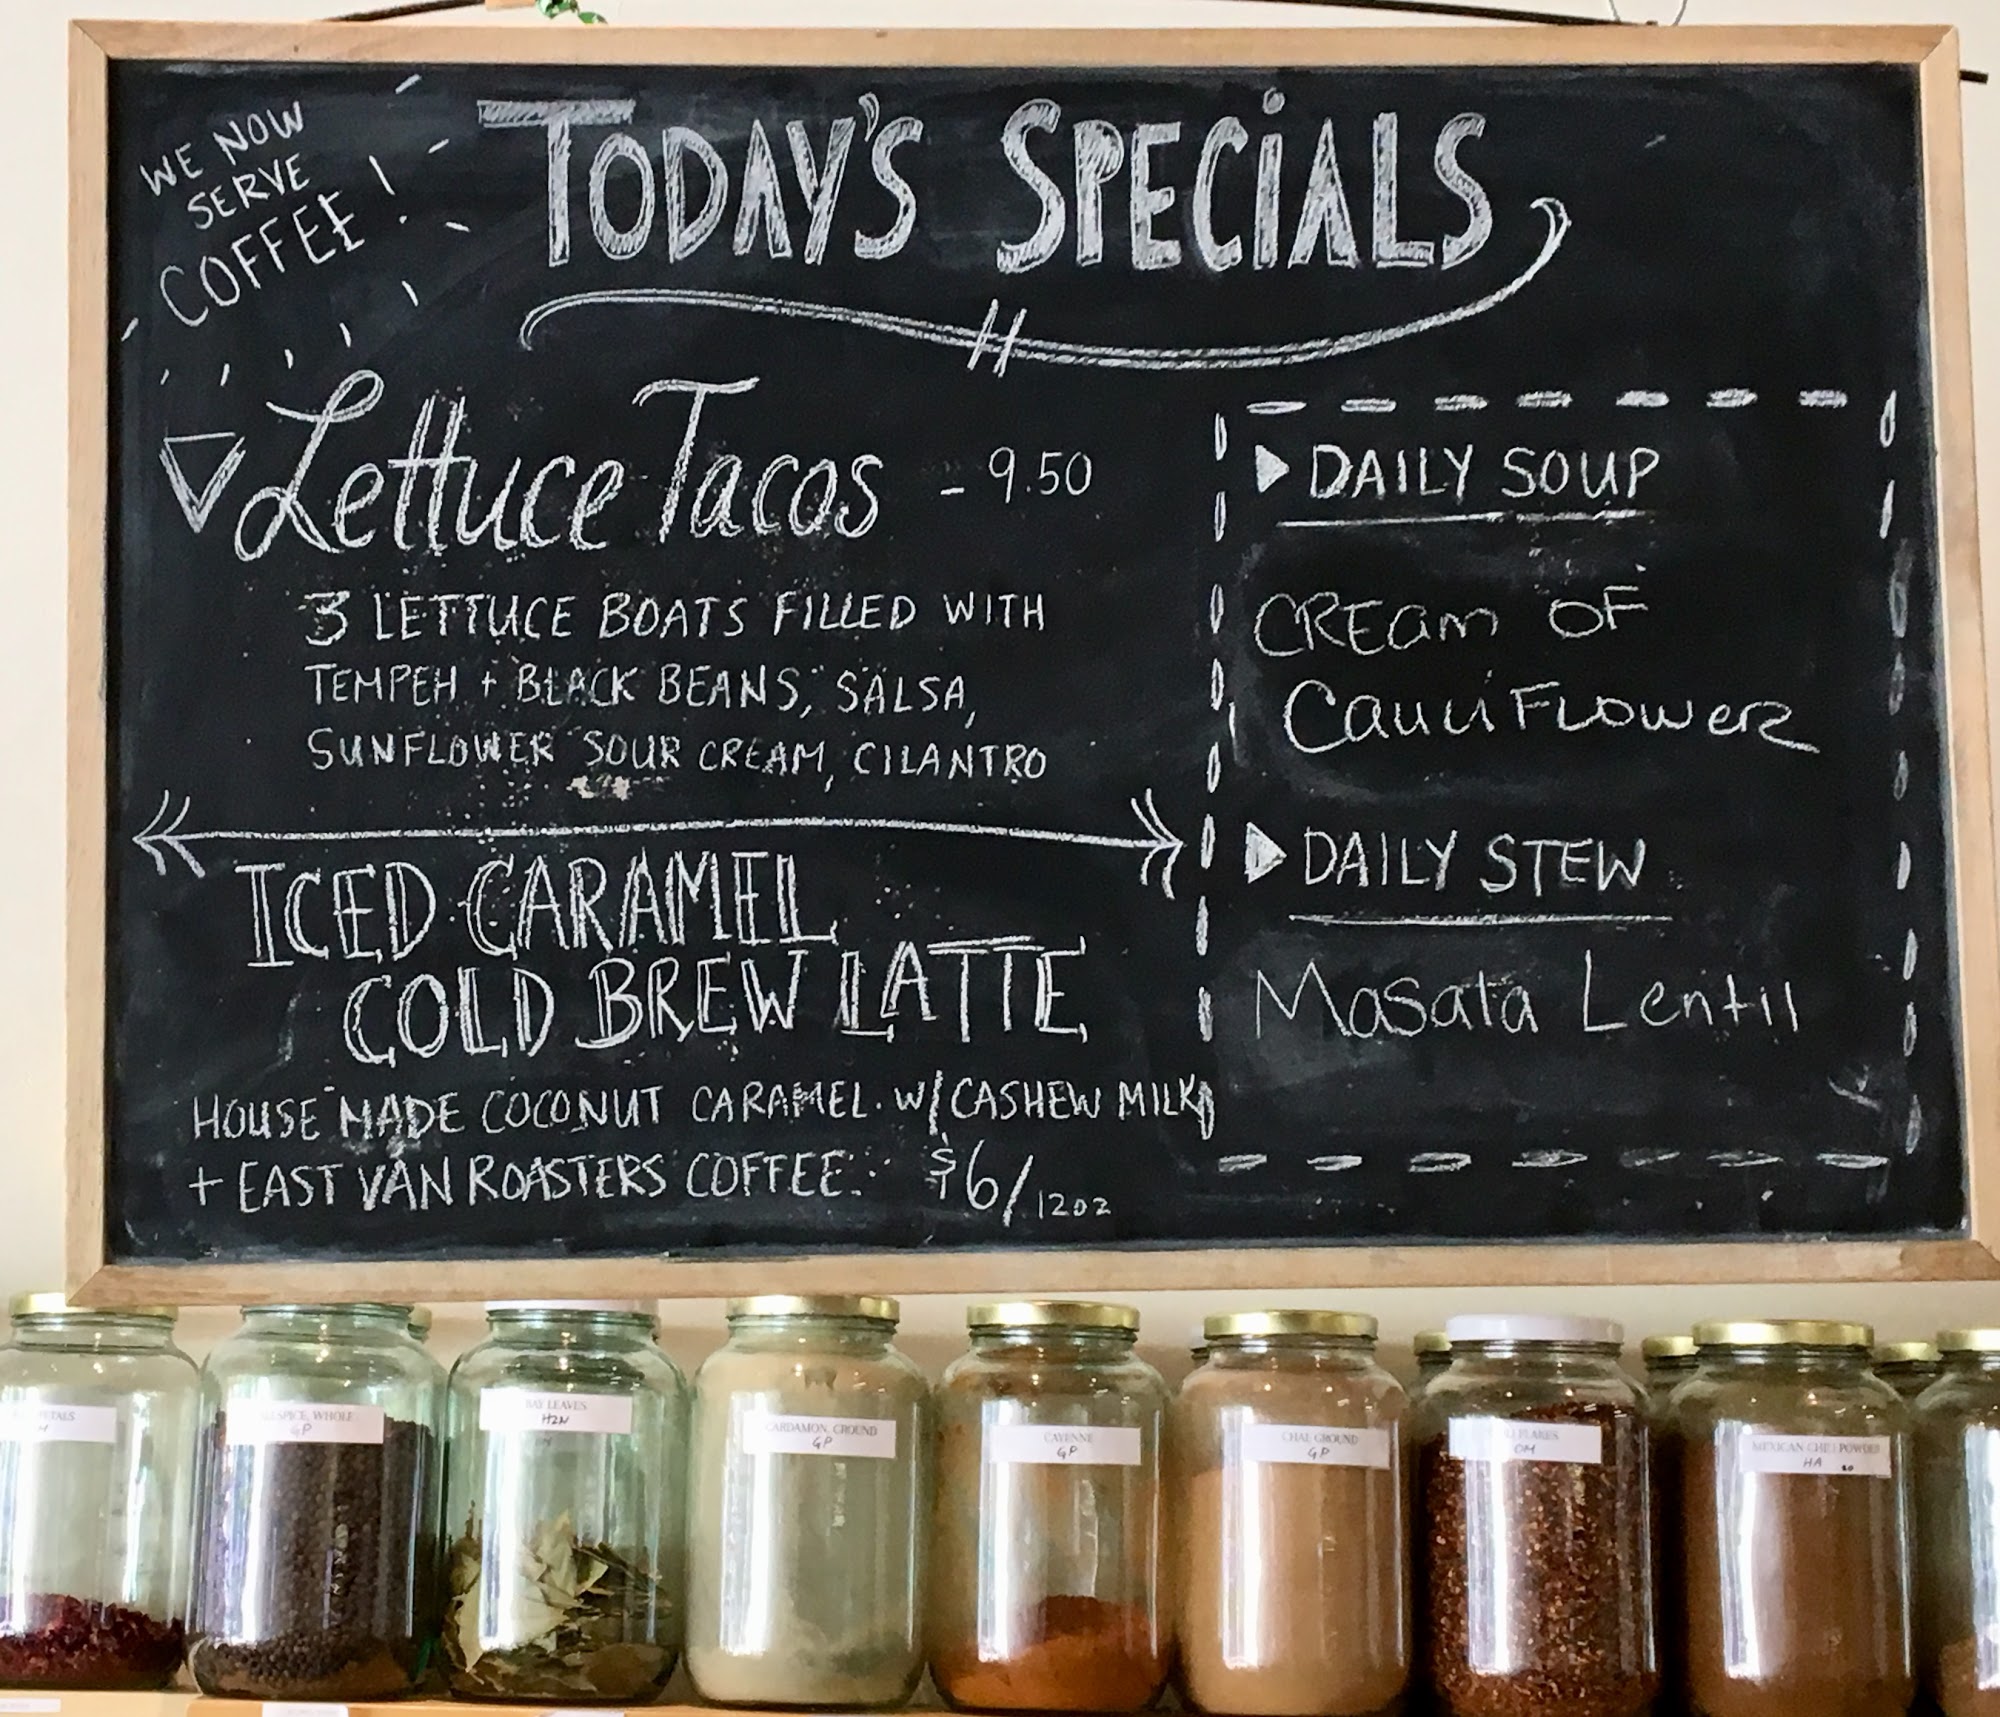 WE NOW
SERVE
COFFEE!
TODAY'S SPECiALS
Lettuce Tacos - 9.50
3 LETTUCE BOATS FILLED WITH
TEMPEH + BLACK BEANS, SALSA,
SUNFLOWER SOUR CREAM, CILANTRO
ICED CARAMEL
COLD BREW LATTE
HOUSE MADE COCONUT CARAMEL W/ CASHEW MILK
+ EAST VAN ROASTERS COFFEE $6/12oz
DAILY SOUP
CREam OF
CauliFLower
DAILY STEW
Masata Lentil
PETALS
ALLSPICE, WHOLE
GP
BAY LEAVES
HZN
CARDAMON, GROUND
GP
CAYENNE
GP
CHAI, GROUND
GP
FLAKES
OM
MEXICAN CHILI POWDER
HA